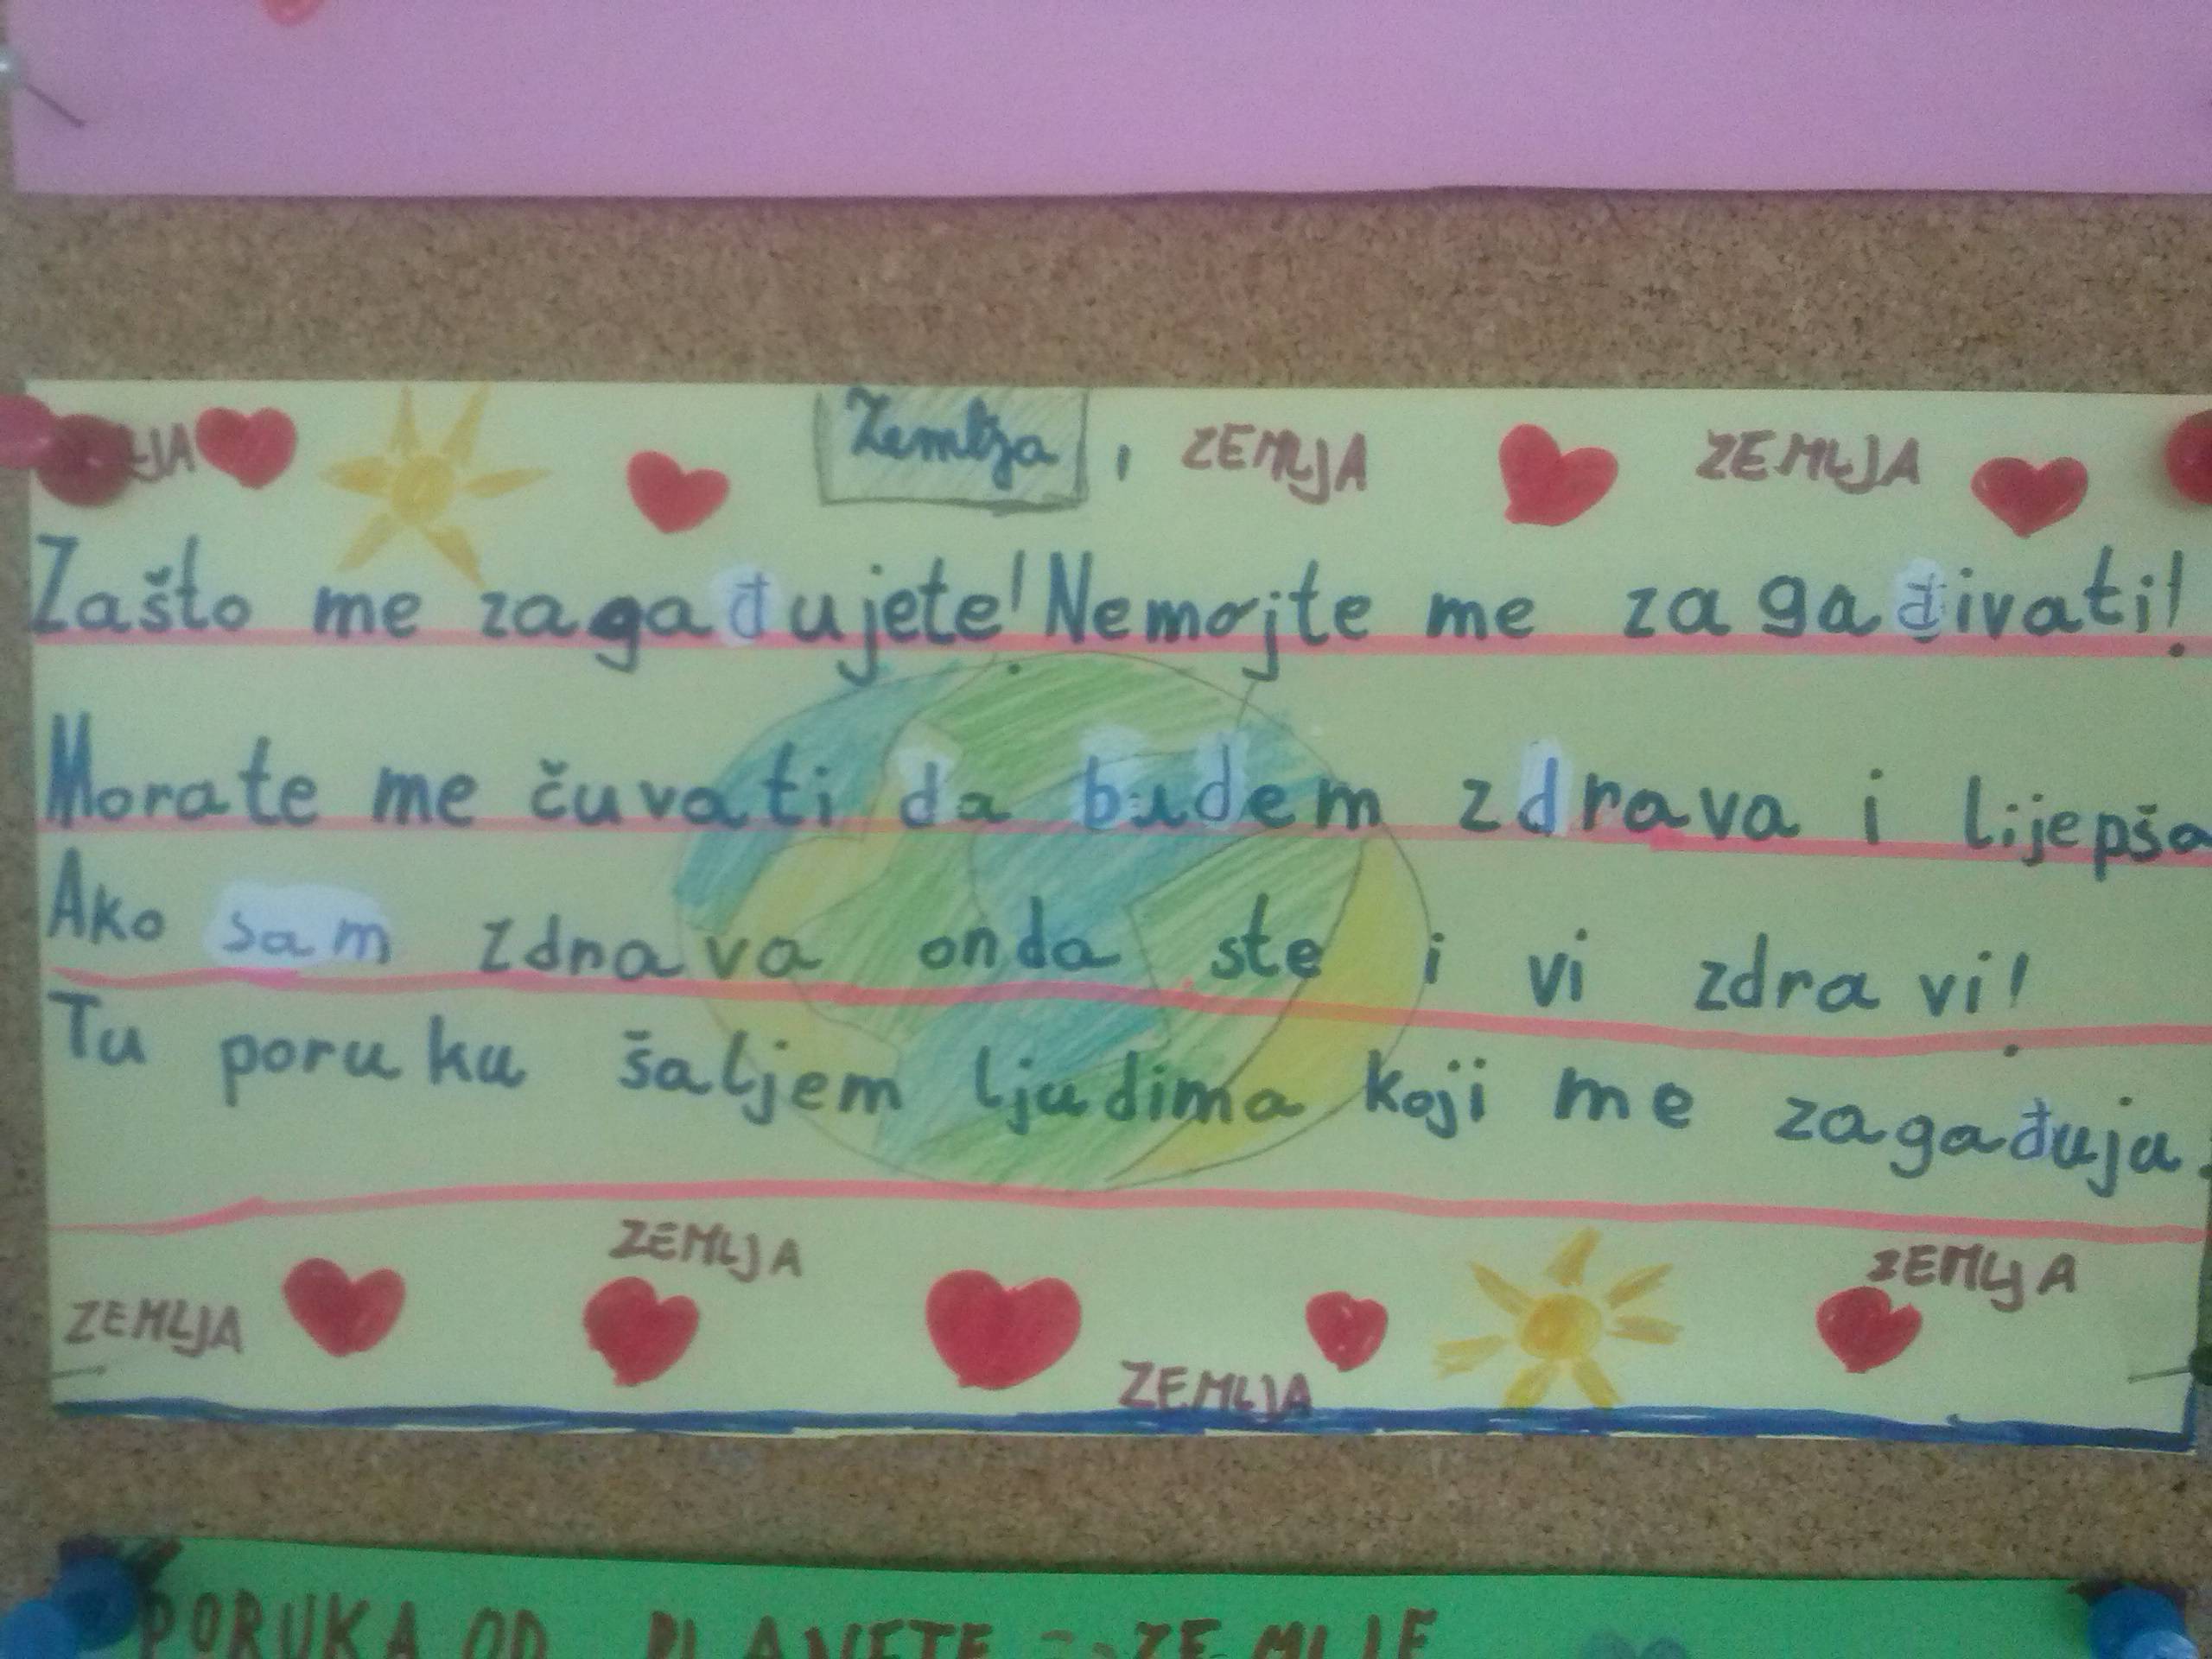 Zemlja, ZEMLJA ZEMLJA
Zašto me zagađujete! Nemojte me zagađivati!
Morate me čuvati da budem zdrava i lijepša
Ako sam zdrava onda ste i vi zdravi!
Tu poruku šaljem ljudima koji me zagađuju.
ZEMLJA
ZEMLJA
ZEMLJA
ZEMLJA
PORUKA OD PLANETE ZEMLJE